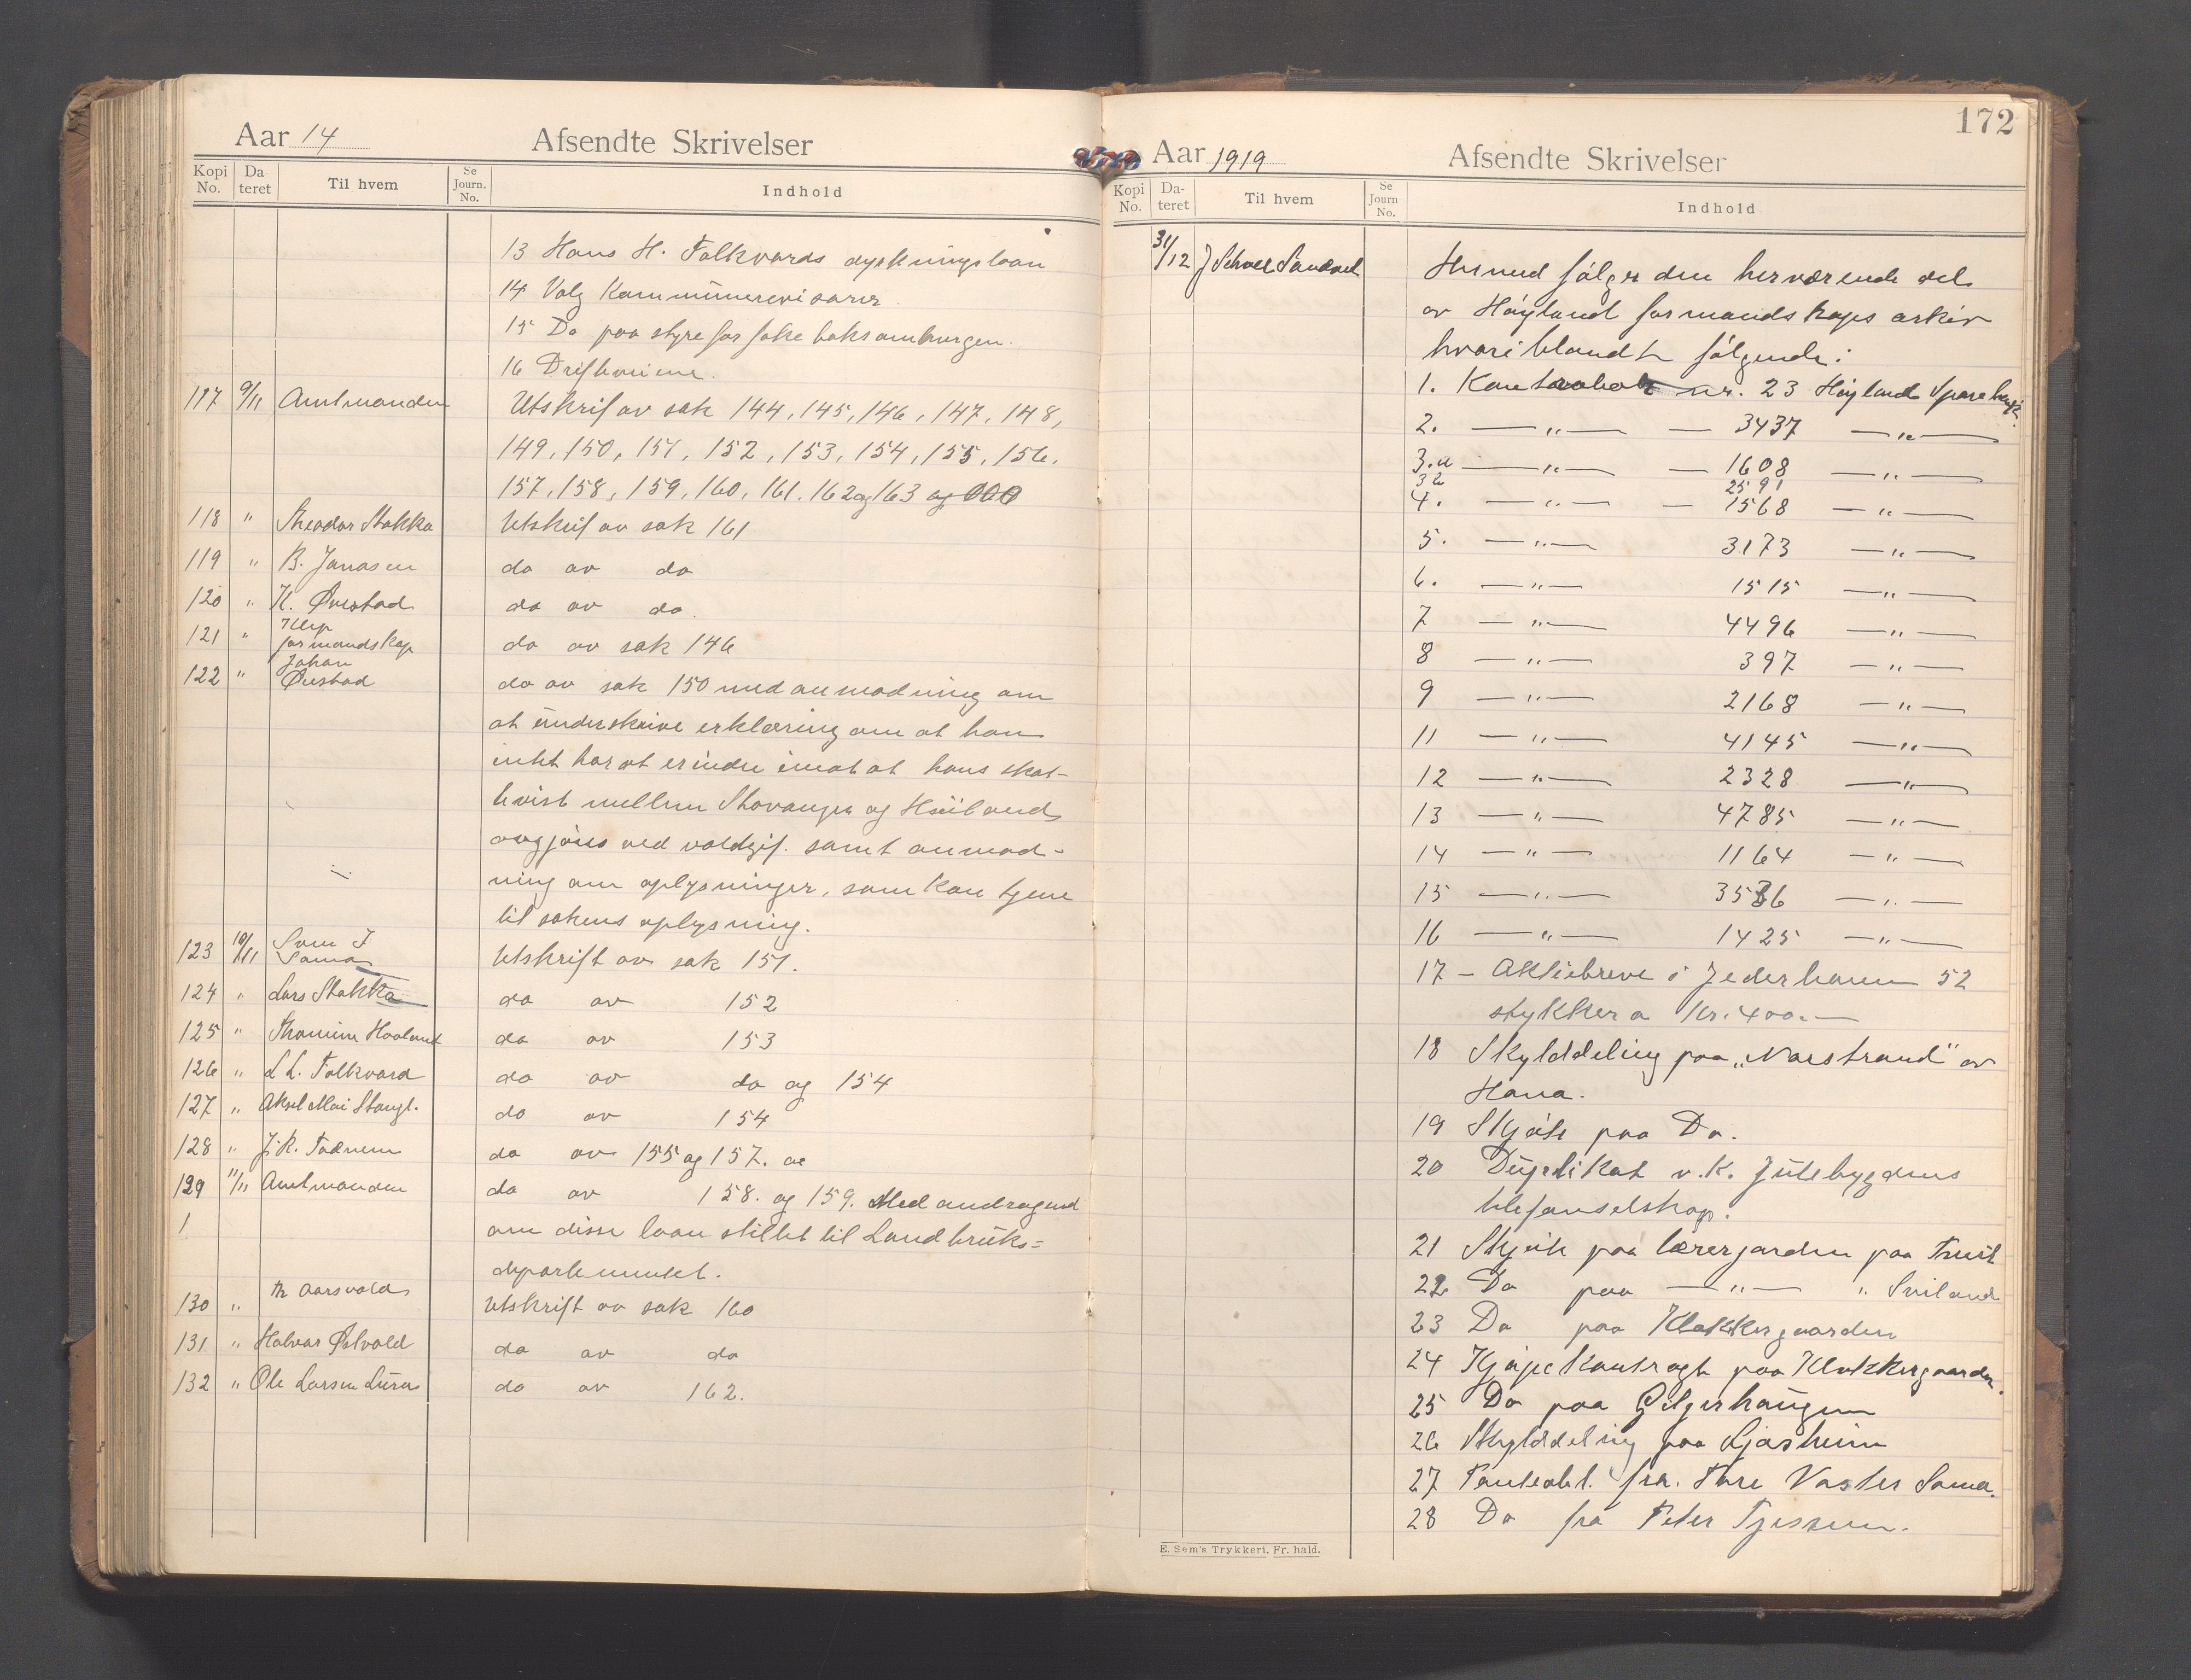 Aar 14
Afsendte Skrivelser
Kopi No.
Da teret
Til hvem
Se Journ. No.
Indhold
13 Hans H. Folkvords dyrkningslaan
14 Valg Kommünerevisorer
15 Do paa styre for folkeboksamlingen.
16 Driftveiene.
117 9/11 Amtmanden Utskrif av sak 144, 145, 146, 147, 148,
149, 150, 151, 152, 153, 154, 155, 156,
157, 158, 159, 160, 161. 162 og 163 og
118 " Theodor Stokka Utskrif av sak 161
119 " B. Jonasen do av do
120 " K. Øvestad do av do.
121 " Klep formandskap do av sak 146
122 " Johan Øvestad do av sak 150 med anmodning om
at ünderskrive erklæring om at han
intet har at erindre imot at hans skat-
tvist mellem Stavanger og Höiland
avgjöres ved voldgif. samt anmod-
ning om oplysninger, som kan tjene
til sakens oplysning.
123 10/11 Sven J Soma Utskrift av sak 151.
124 " Lars Stokka do av 152
125 " Thomine Hooland do av 153
126 " L L. Folkvord do av do og 154
127 " Aksel Mai Stangl. do av 154
128 " J. K. Fodnem do av 155 og 157. og
129 11/11 Amtmanden do av 158. og 159. Med andragend
1 om disse laan stillet til Landbrüks=
departementet.
130 " Th Aarsvold Utskrift av sak 160
131 " Halvor Østvold do av do
132 " Ole Larsen Lura do av 162.
172
Aar 1919
Afsendte Skrivelser
Kopi No.
Da- teret
Til hvem
Se Journ No.
Indhold
31/12 J Schve Sandved Hermed følger den herværende del
av Høyland formandskaps arkiv
hvoriblandt følgende:
1. Kontrabok nr. 23 Høylands Sparebank.
2. — " — — 3437 — " —
3.a — " — — 1608 — " —
3b 2591
4. — " — — 1568 — " —
5. — " — 3173 — " —
6. — " — 1515 — " —
7 — " — 4496 — " —
8 — " — 397 — " —
9 — " — 2168 — " —
11 — " — 4145 — " —
12 — " — 2328 — " —
13 — " — 4785 — " —
14 — " — 1164 — " —
15 — " — 3536 — " —
16 — " — 1425 — " —
17 — Aktiebreve i Jederbanen 52
stykker a Kr. 400.—
18 Skylddeling paa „Norstrand" av
Hana.
19 Skjøte paa Do.
20 Düplikat v. K. Jütebygdens
telefonselskap.
21 Skjøte paa lærerjorden paa Tveit
22 Do paa — " — " Sviland
23 Do paa Klokkergaarden
24 Kjøpekontragt paa Klokkergaarden.
25 Do paa Gilgerhaügen
26 Skylddeling paa Ljosheim
27 Panteobl. fra. Tore Soma.
28 Do fra Peter Tjessem.
E. Sem's Trykkeri. Fr. hald.